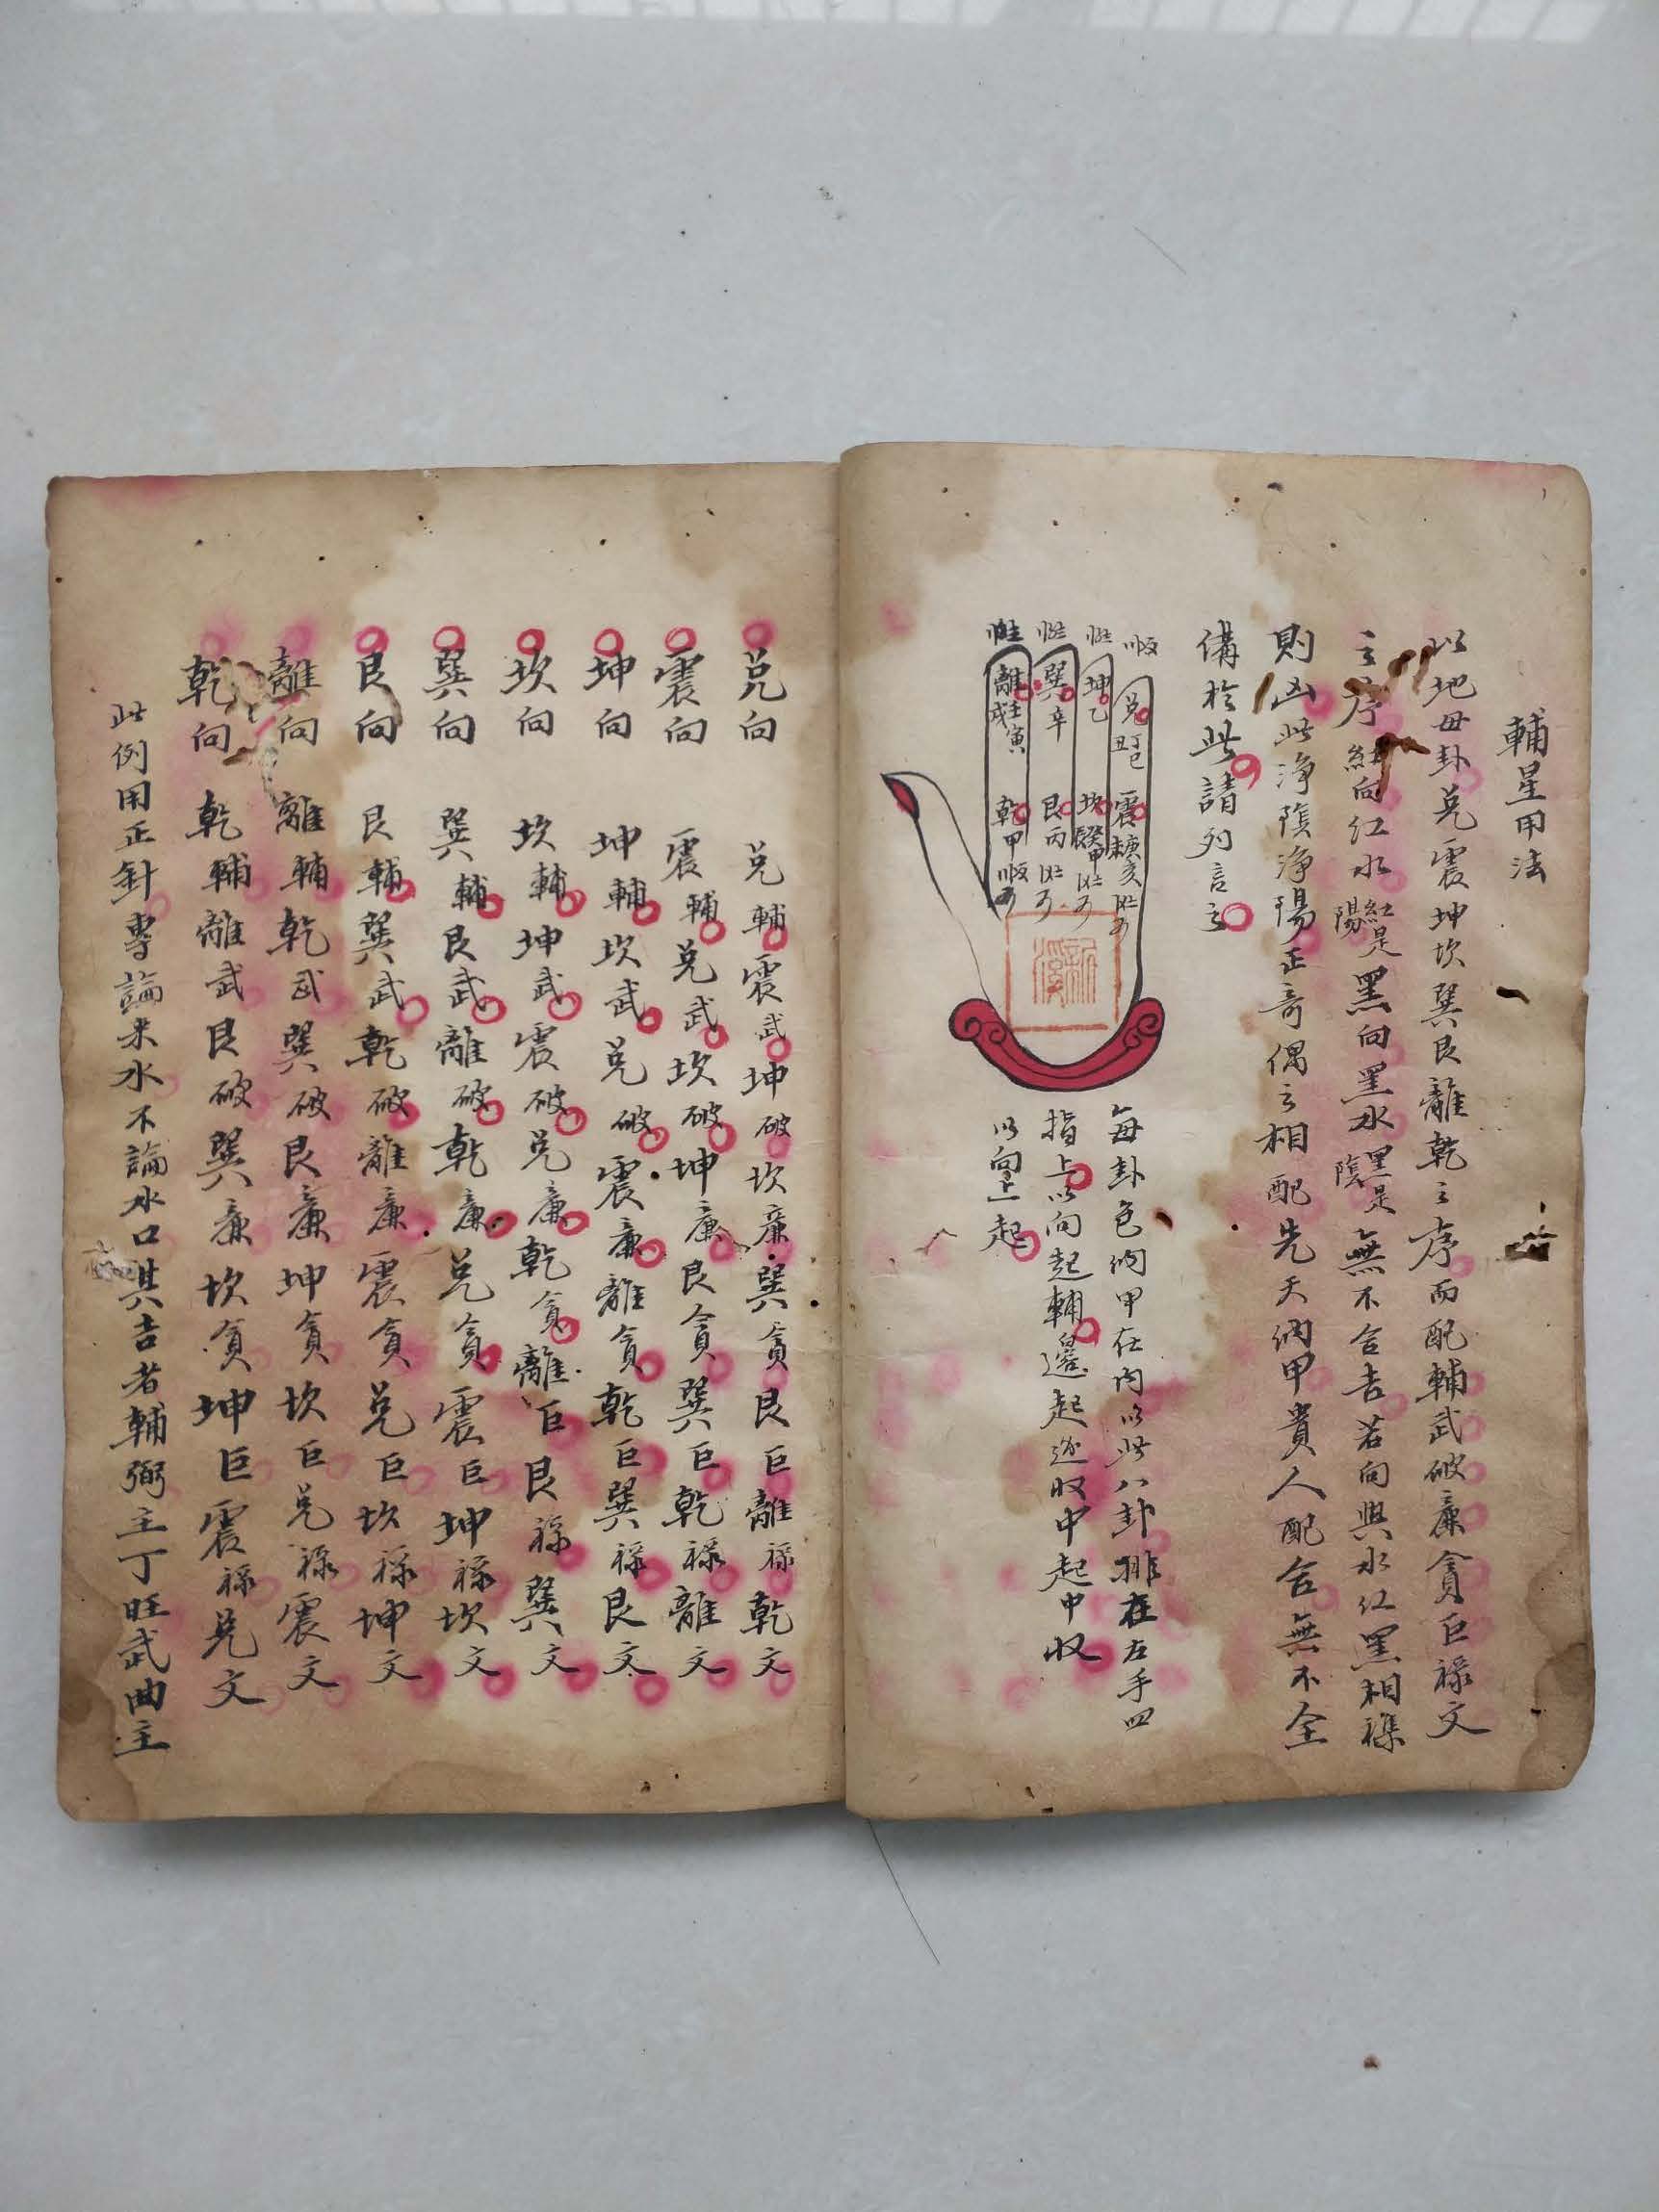 輔星用法
以地母卦兌震坤坎巽艮離乾之序而配輔武破廉貪巨祿文
之序紅向紅水紅是陽黑向黑水黑是陰無不合吉若向與水紅黑相襍
則凶此淨陰淨陽正奇偶之相配先天納甲貴人配合無不全
俻於此請列言之
順
兌丁巳丑
震庚亥未
坤乙
坎癸申辰
巽辛
艮丙
離壬寅戌
乾甲
每卦包納甲在內以此八卦排在左手四
指上以向起輔邊起邊收中起中收
以向上起
兌向 兌輔震武坤破坎廉巽貪艮巨離祿乾文
震向 震輔兌武坎破坤廉艮貪巽巨乾祿離文
坤向 坤輔坎武兌破震廉離貪乾巨巽祿艮文
坎向 坎輔坤武震破兌廉乾貪離巨艮祿巽文
巽向 巽輔艮武離破乾廉兌貪震巨坤祿坎文
艮向 艮輔巽武乾破離廉震貪兌巨坎祿坤文
離向 離輔乾武巽破艮廉坤貪坎巨兌祿震文
乾向 乾輔離武艮破巽廉坎貪坤巨震祿兌文
此例用正針專論來水不論水口其吉者輔弼主丁旺武曲主